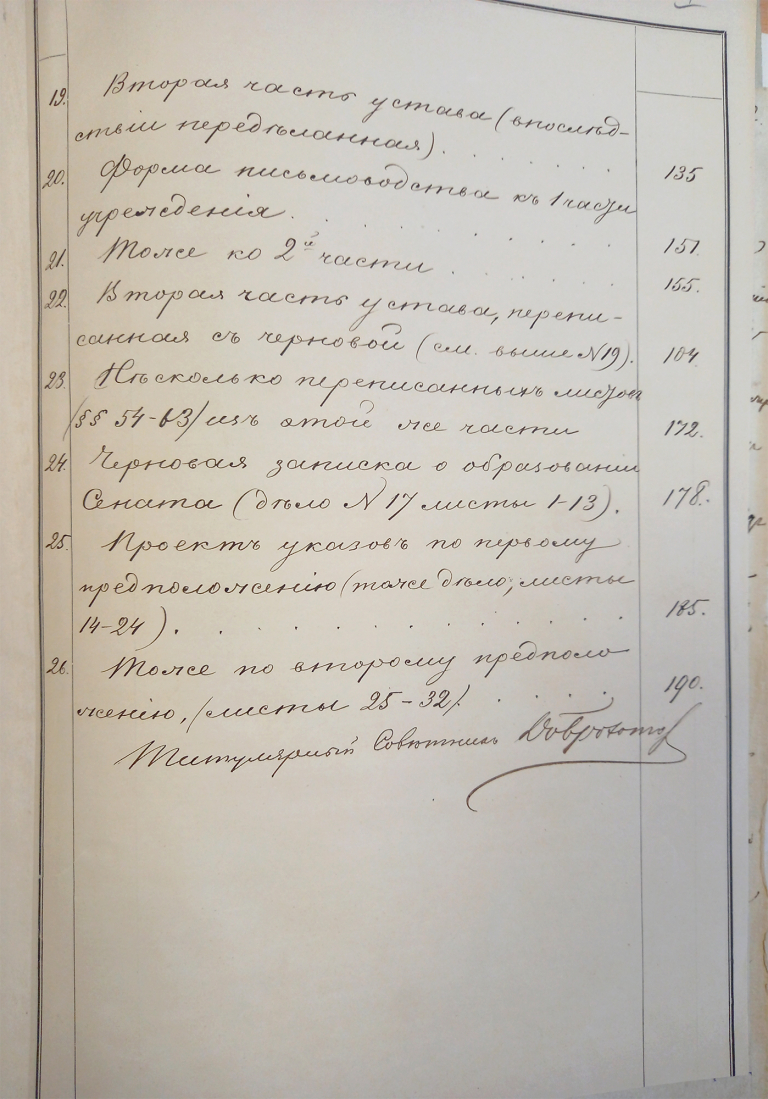 19. Вторая часть устава (впослѣд-
ствіи передѣланная). . . . . . . 135
20. Форма письмоводства къ 1 части
учрежденія . . . . . . . . 151
21. Тоже ко 2й части . . . . . . 155.
22. Вторая часть устава, перепи-
санная съ черновой (см. выше N 19). 164
23. Нѣсколько переписанныхъ листовъ
(§§ 54-63) изъ этой же части 172.
24. Черновая записка о образованіи
Сената (дѣло N 17 листы 1-13). 178.
25. Проектъ указовъ по первому
предположенію (тоже дѣло, листы
14-24). . . . . . . . . . 185.
26. Тоже по второму предполо
женію, (листы 25-32). . . . . 190.
Титулярный Совѣтникъ